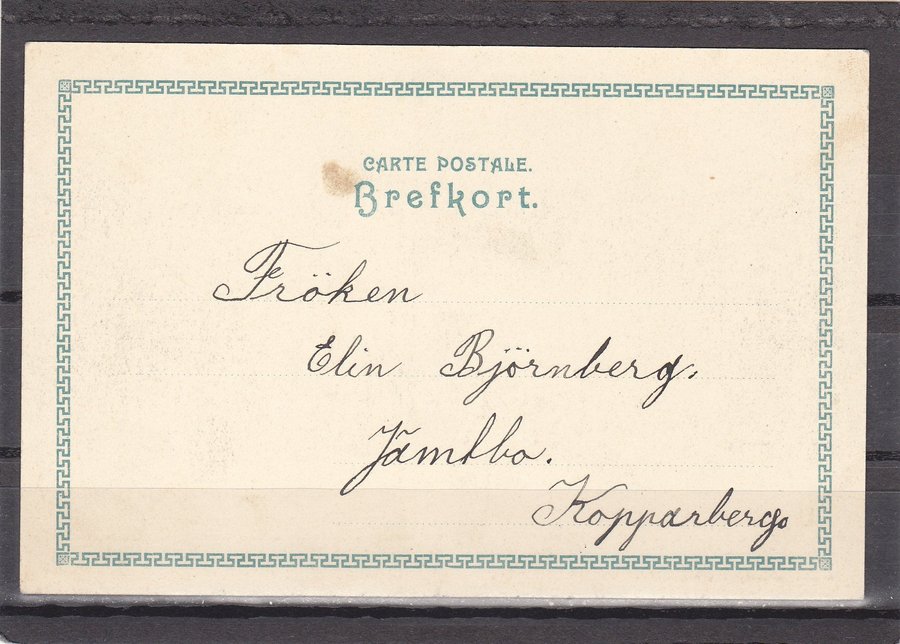 CARTE POSTALE.
Brefkort.
Fröken
Elin Björnberg,
Jämtbo.
Kopparberg